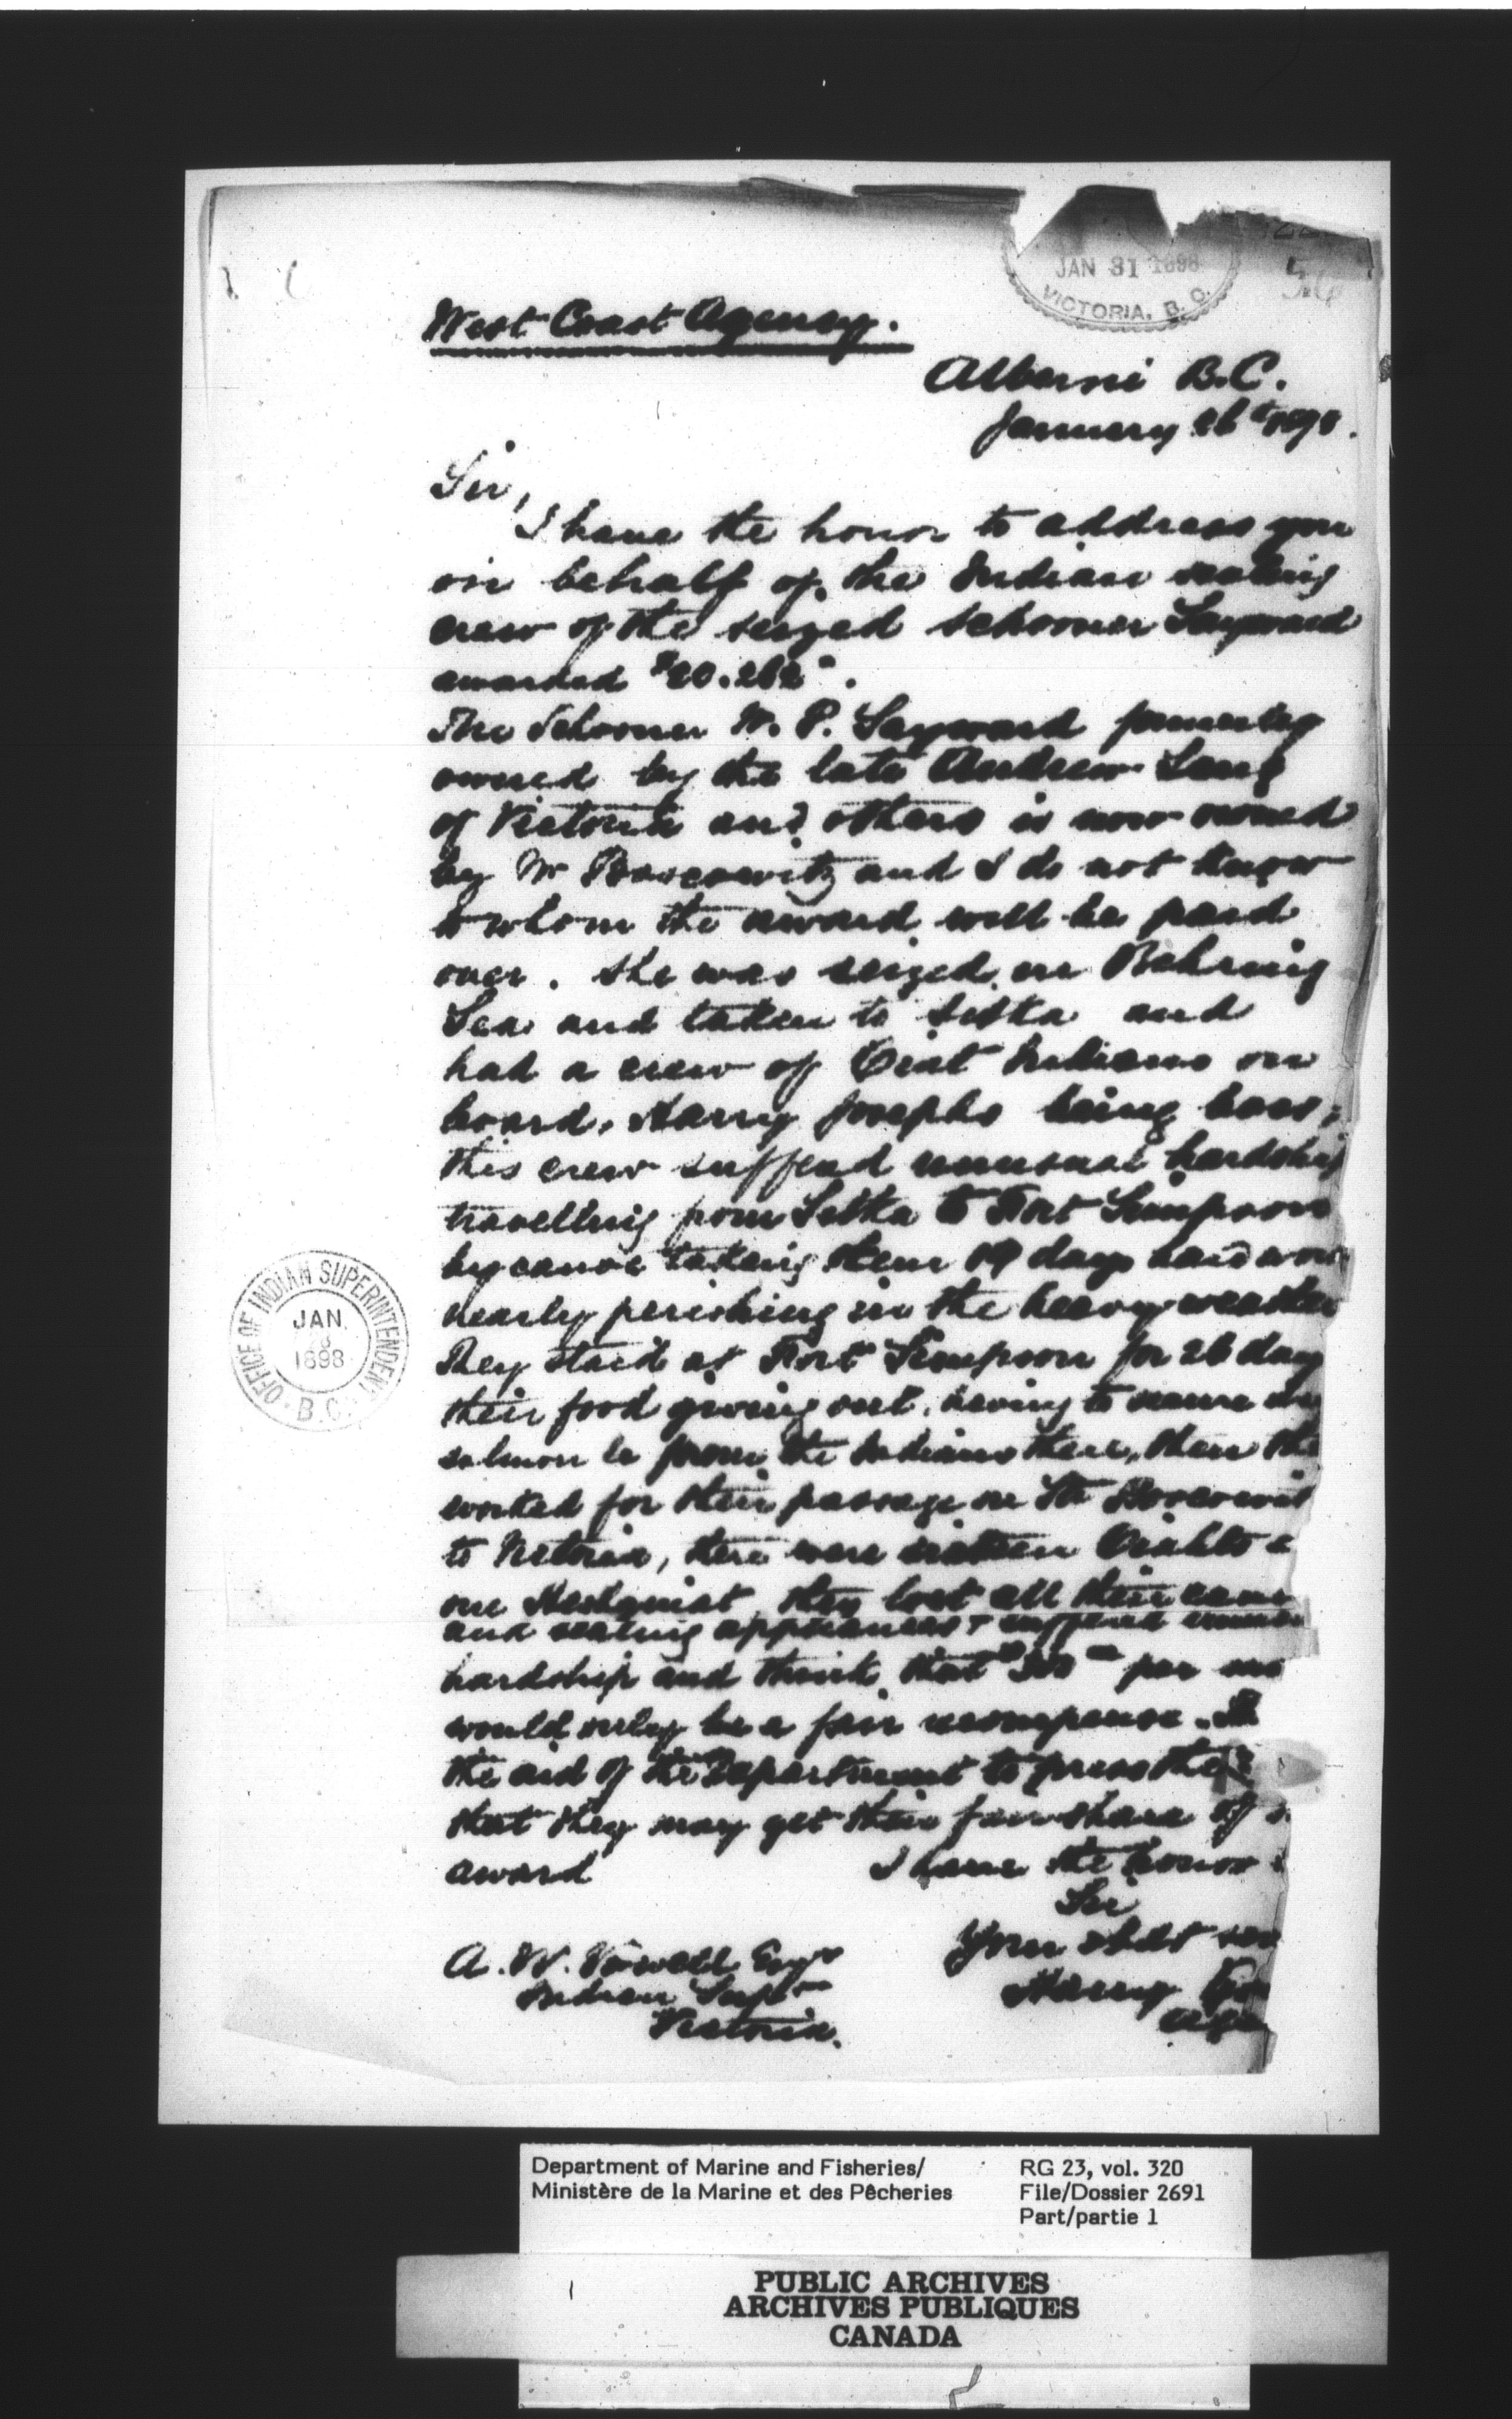 JAN 31 1898
VICTORIA, B. C.
West Coast Agency.
Alberni B.C.
January 26th 1898.
Sir,
I have the honor to address you
on behalf of the Indian sealing
crew of the seized schooner Sayward
awarded
The Schooner W. P. Sayward formerly
owned by the late Andrew Laing
of Victoria and others is now owned
by Mr Boscowitz and I do not know
to whom the award will be paid
over. She was seized in Behring
Sea and taken to Sitka and
had a crew of Indians on
board, Harry Josephs being boss,
this crew sufferd unusual hardship
travelling from Sitka to Fort Simpson
by canoe taking them 19 days hard
nearly perishing in the heavy weather
They staid at Fort Simpson for 26 day
their food giving out, having to
salmon &c from the Indians there, then the
worked for their passage on Str Boscowit
to Victoria, there were sixteen
one Hesquiat, they lost all their
and sealing appliances & sufferd
hardship and think that per
would only be a fair recompense.
the aid of the Department to press the
that they may get their fair share of
award
I have the honor
Sir
Your obdt
Harry
A. W. Vowell Esqr
Indian Supt
Victoria.
OFFICE OF INDIAN SUPERINTENDENT
JAN.
1898
B.C.
Department of Marine and Fisheries/
Ministère de la Marine et des Pêcheries
RG 23, vol. 320
File/Dossier 2691
Part/partie 1
PUBLIC ARCHIVES
ARCHIVES PUBLIQUES
CANADA